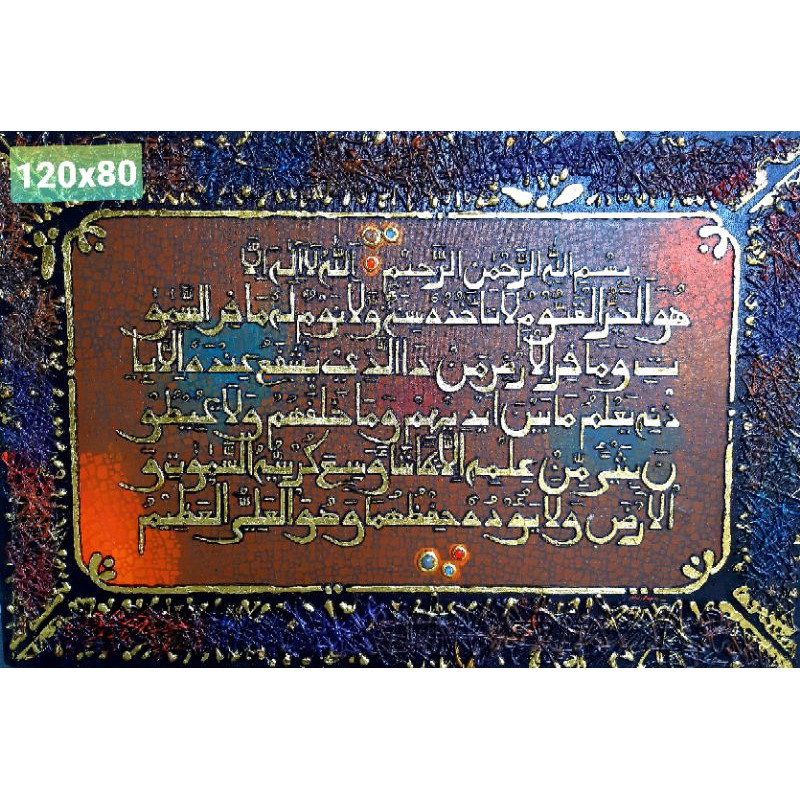 120x80
بسم الله الرحمن الرحيم الله لا اله الا
هو الحي القيوم لا تاخذه سنة ولا نوم له ما في السمو
ت وما في الارض من ذا الذي يشفع عنده الا با
ذنه يعلم ما بين ايديهم وما خلفهم ولا يحيطو
ن بشيء من علمه الا بما شا وسع كرسيه السموت و
الارض ولا يوده حفظهما وهو العلي العظيم